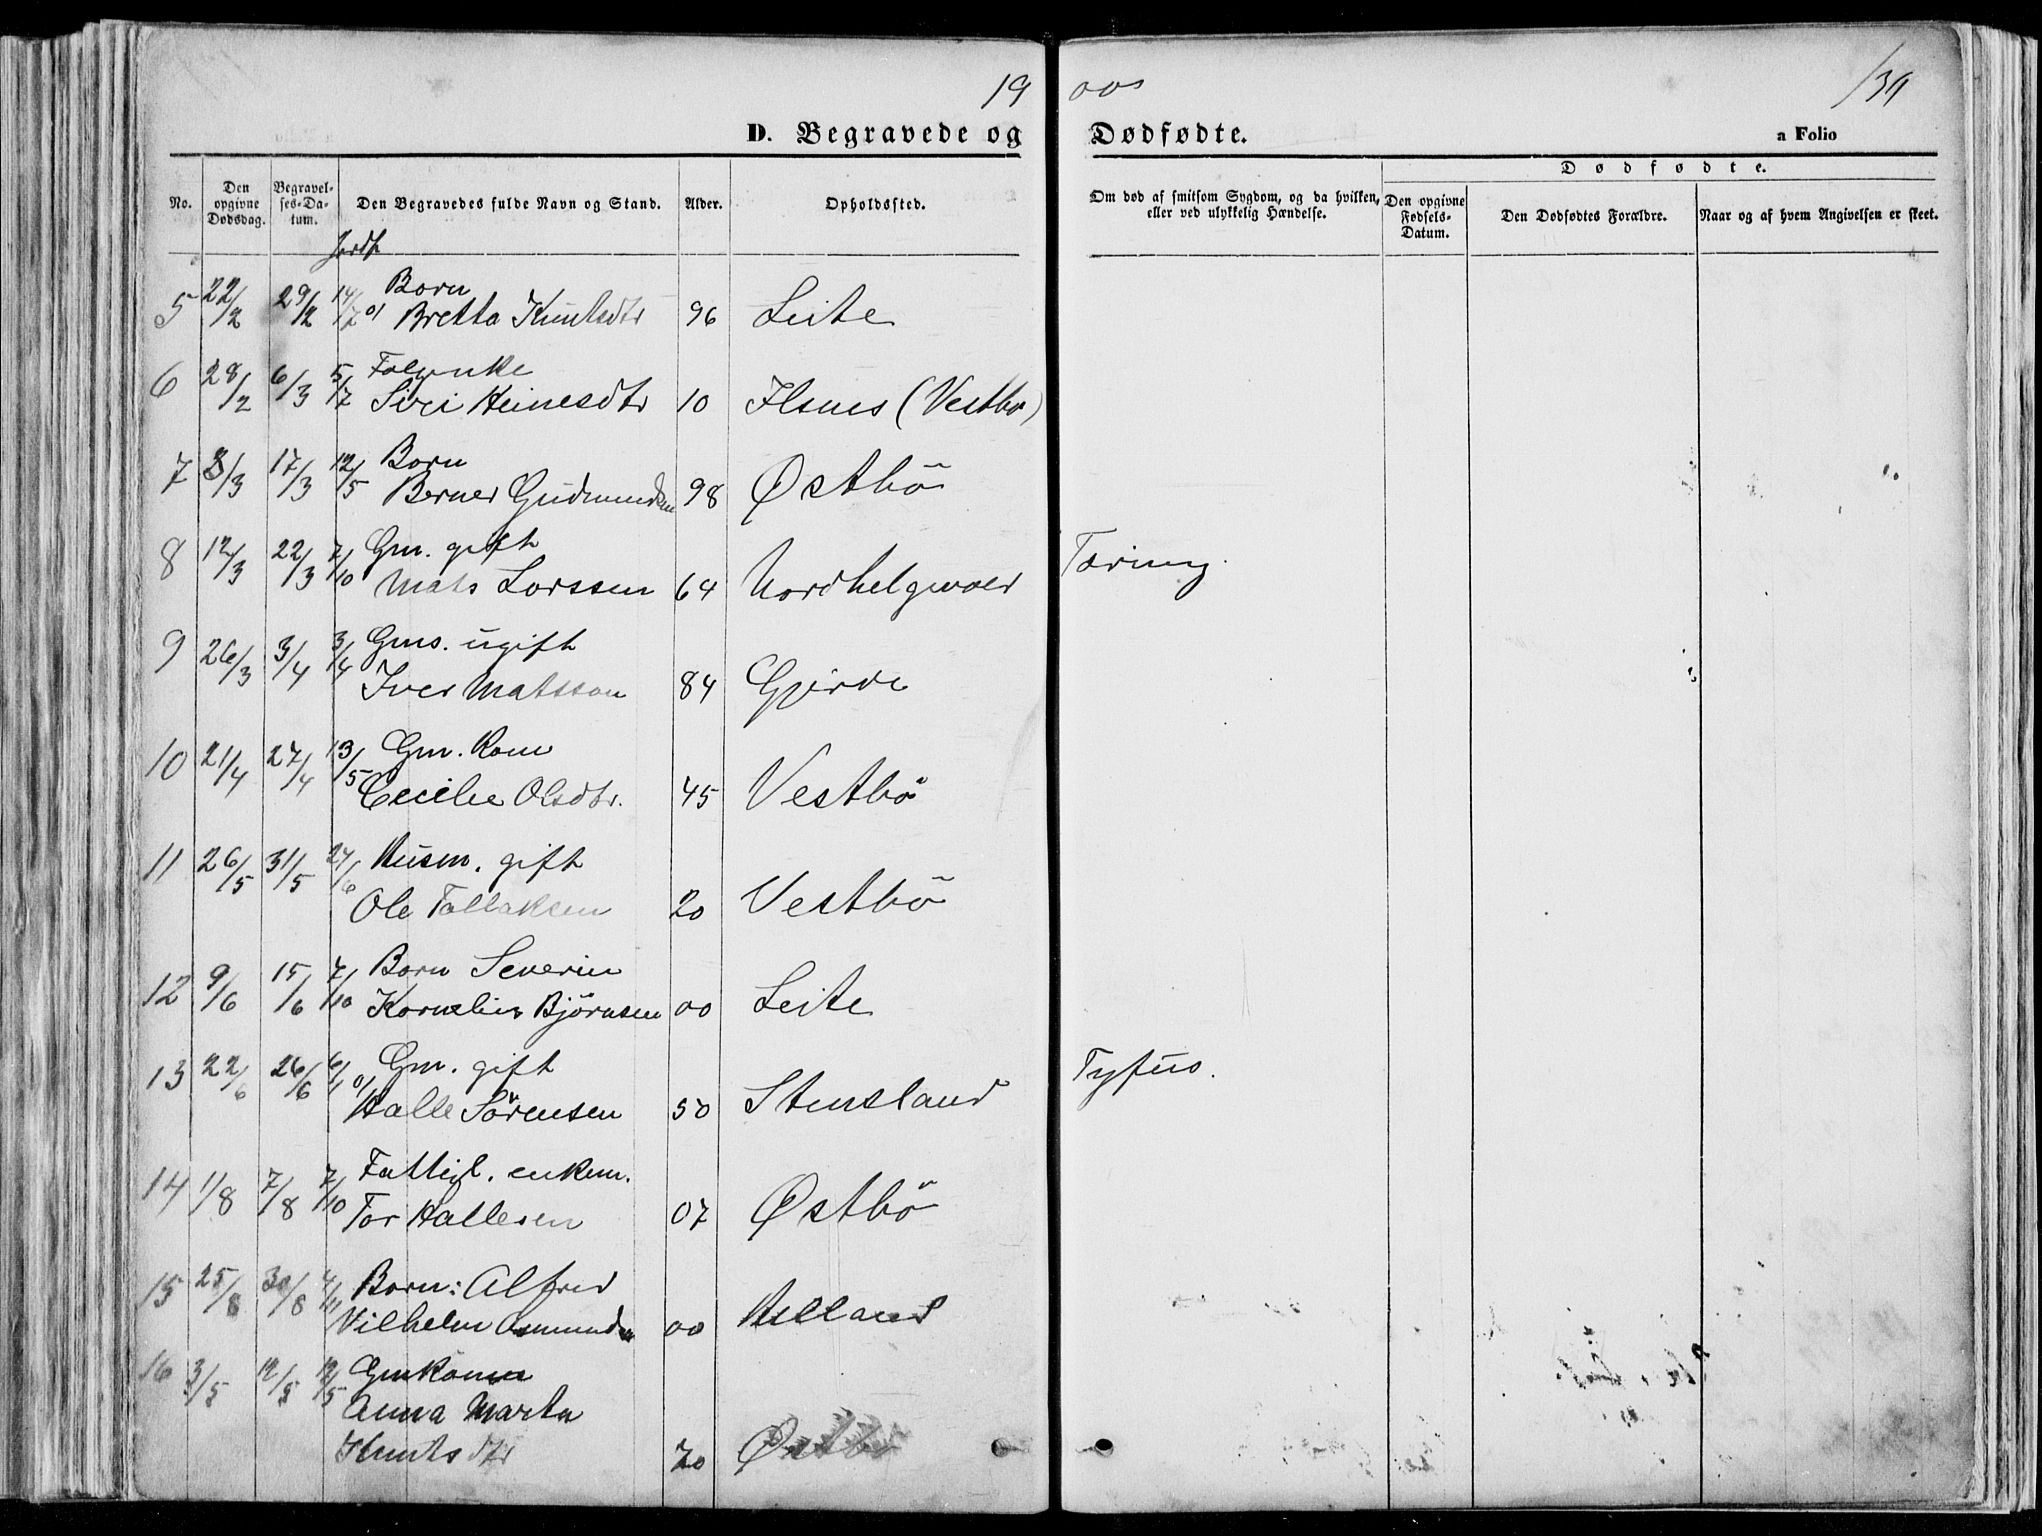 19
00
139
D. Begravede og
Dødfødte.
a Folio
No.
Den opgivne Dødsdag.
Begravel-ses-Da-tum.
Den Begravedes fulde Navn og Stand.
Alder.
Opholdssted.
Om død af smitsom Sygdom, og da hvilken, eller ved ulykkelig Hændelse.
Dødfødte.
Den opgivne Fødsels-Datum.
Den Dødfødtes Forældre.
Naar og af hvem Angivelsen er skeet.
Jordf
5 22/2 29/2 14/7 01 Barn
Bretta Knutsdtr 96 Leite
6 28/2 6/3 5/7 Folgenke
Siri Heinesdtr 10 Ilsnes (Vestbø)
7 8/3 17/3 12/5 Barn
Berner Gudmundsen 98 Østbö
8 12/3 22/3 7/10 Gm. gift
Mats Larssen 64 Nordhelgevold Tæring.
9 26/3 3/4 3/4 Gms. ugift
Iver Matsson 84 Gjerde
10 21/4 27/4 13/5 Gm. Kone
Cecilie Olsdtr. 45 Vestbö
11 26/5 31/5 24/6 Husm. gift
Ole Tollaksen 20 Vestbö
12 9/6 15/6 7/10 Barn Severin
Kornelius Björnsen 00 Leite
13 22/6 26/6 6/1 01 Gm. gift
Halle Sörensen 50 Stensland Tyfus.
14 1/8 7/8 7/10 Fattigl. enkem.
Tor Hallesen 07 Østbö
15 25/8 30/8 4/11 Barn: Alfred
Vilhelm Osmundsen 00 Helland
16 3/5 12/5 12/5 Gmkone
Anna Marta
Knutsdtr 70 Østbö